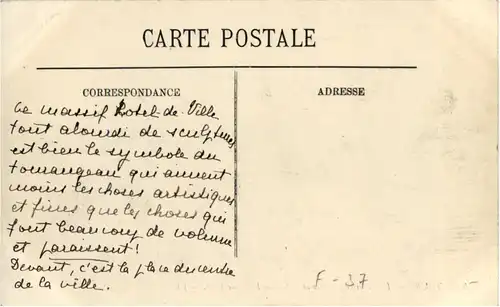 CARTE POSTALE
CORRESPONDANCE
ADRESSE
Ce massif Hotel-de-Ville
tout alourdi de sculptures
est bien le symbole du
tourangeau qui aiment
moins les choses artistiques
et fines que les choses qui
font beaucoup de volume
et paraissent!
Devant, c'est la place du centre
de la ville.
F-37